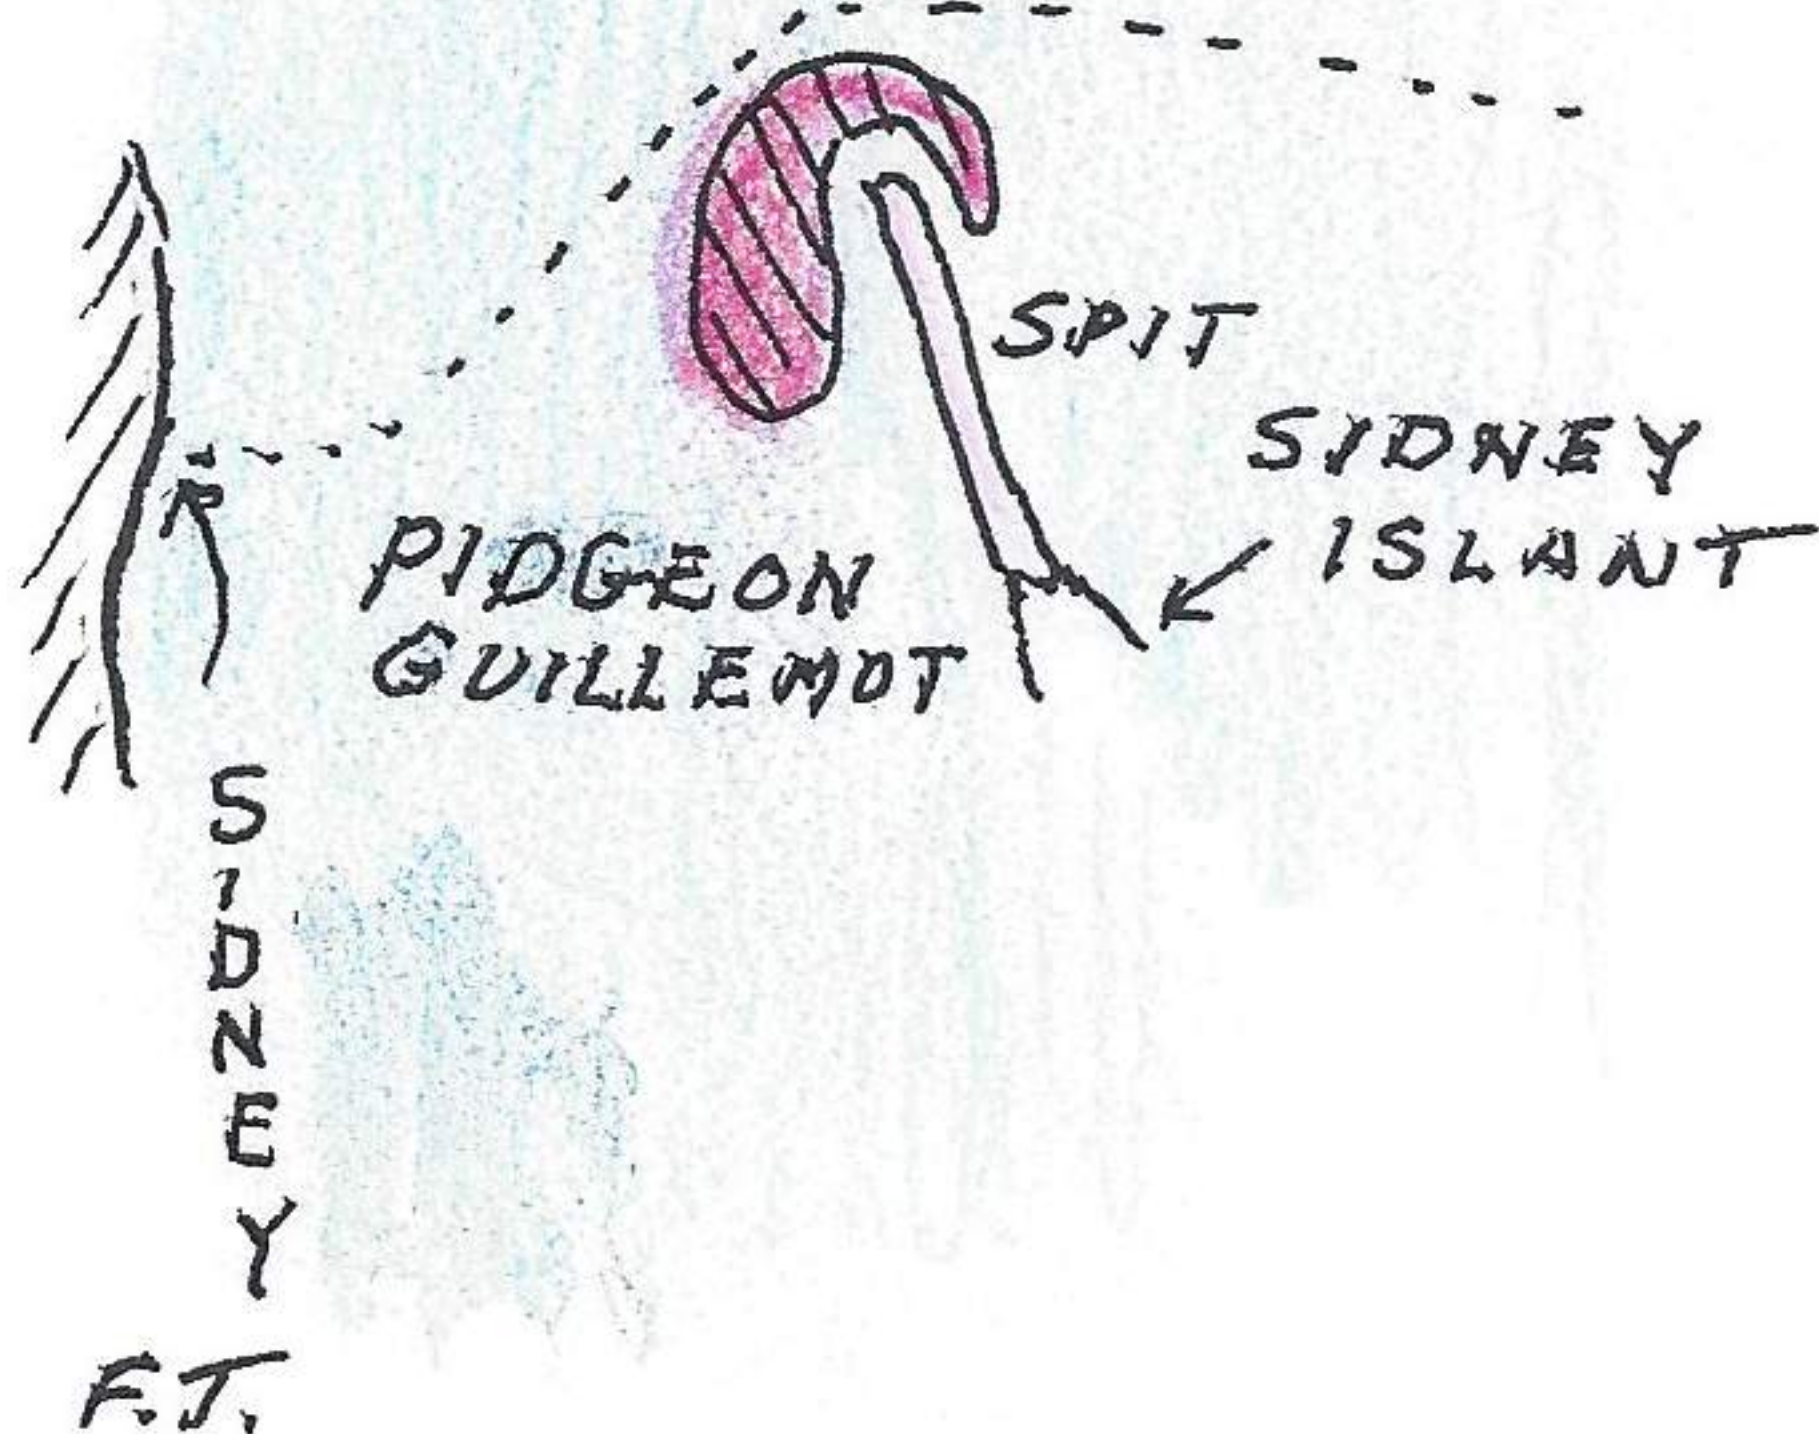 SPIT
SIDNEY
ISLANT
PIDGEON
GUILLEMOT
SIDNEY
F.J.